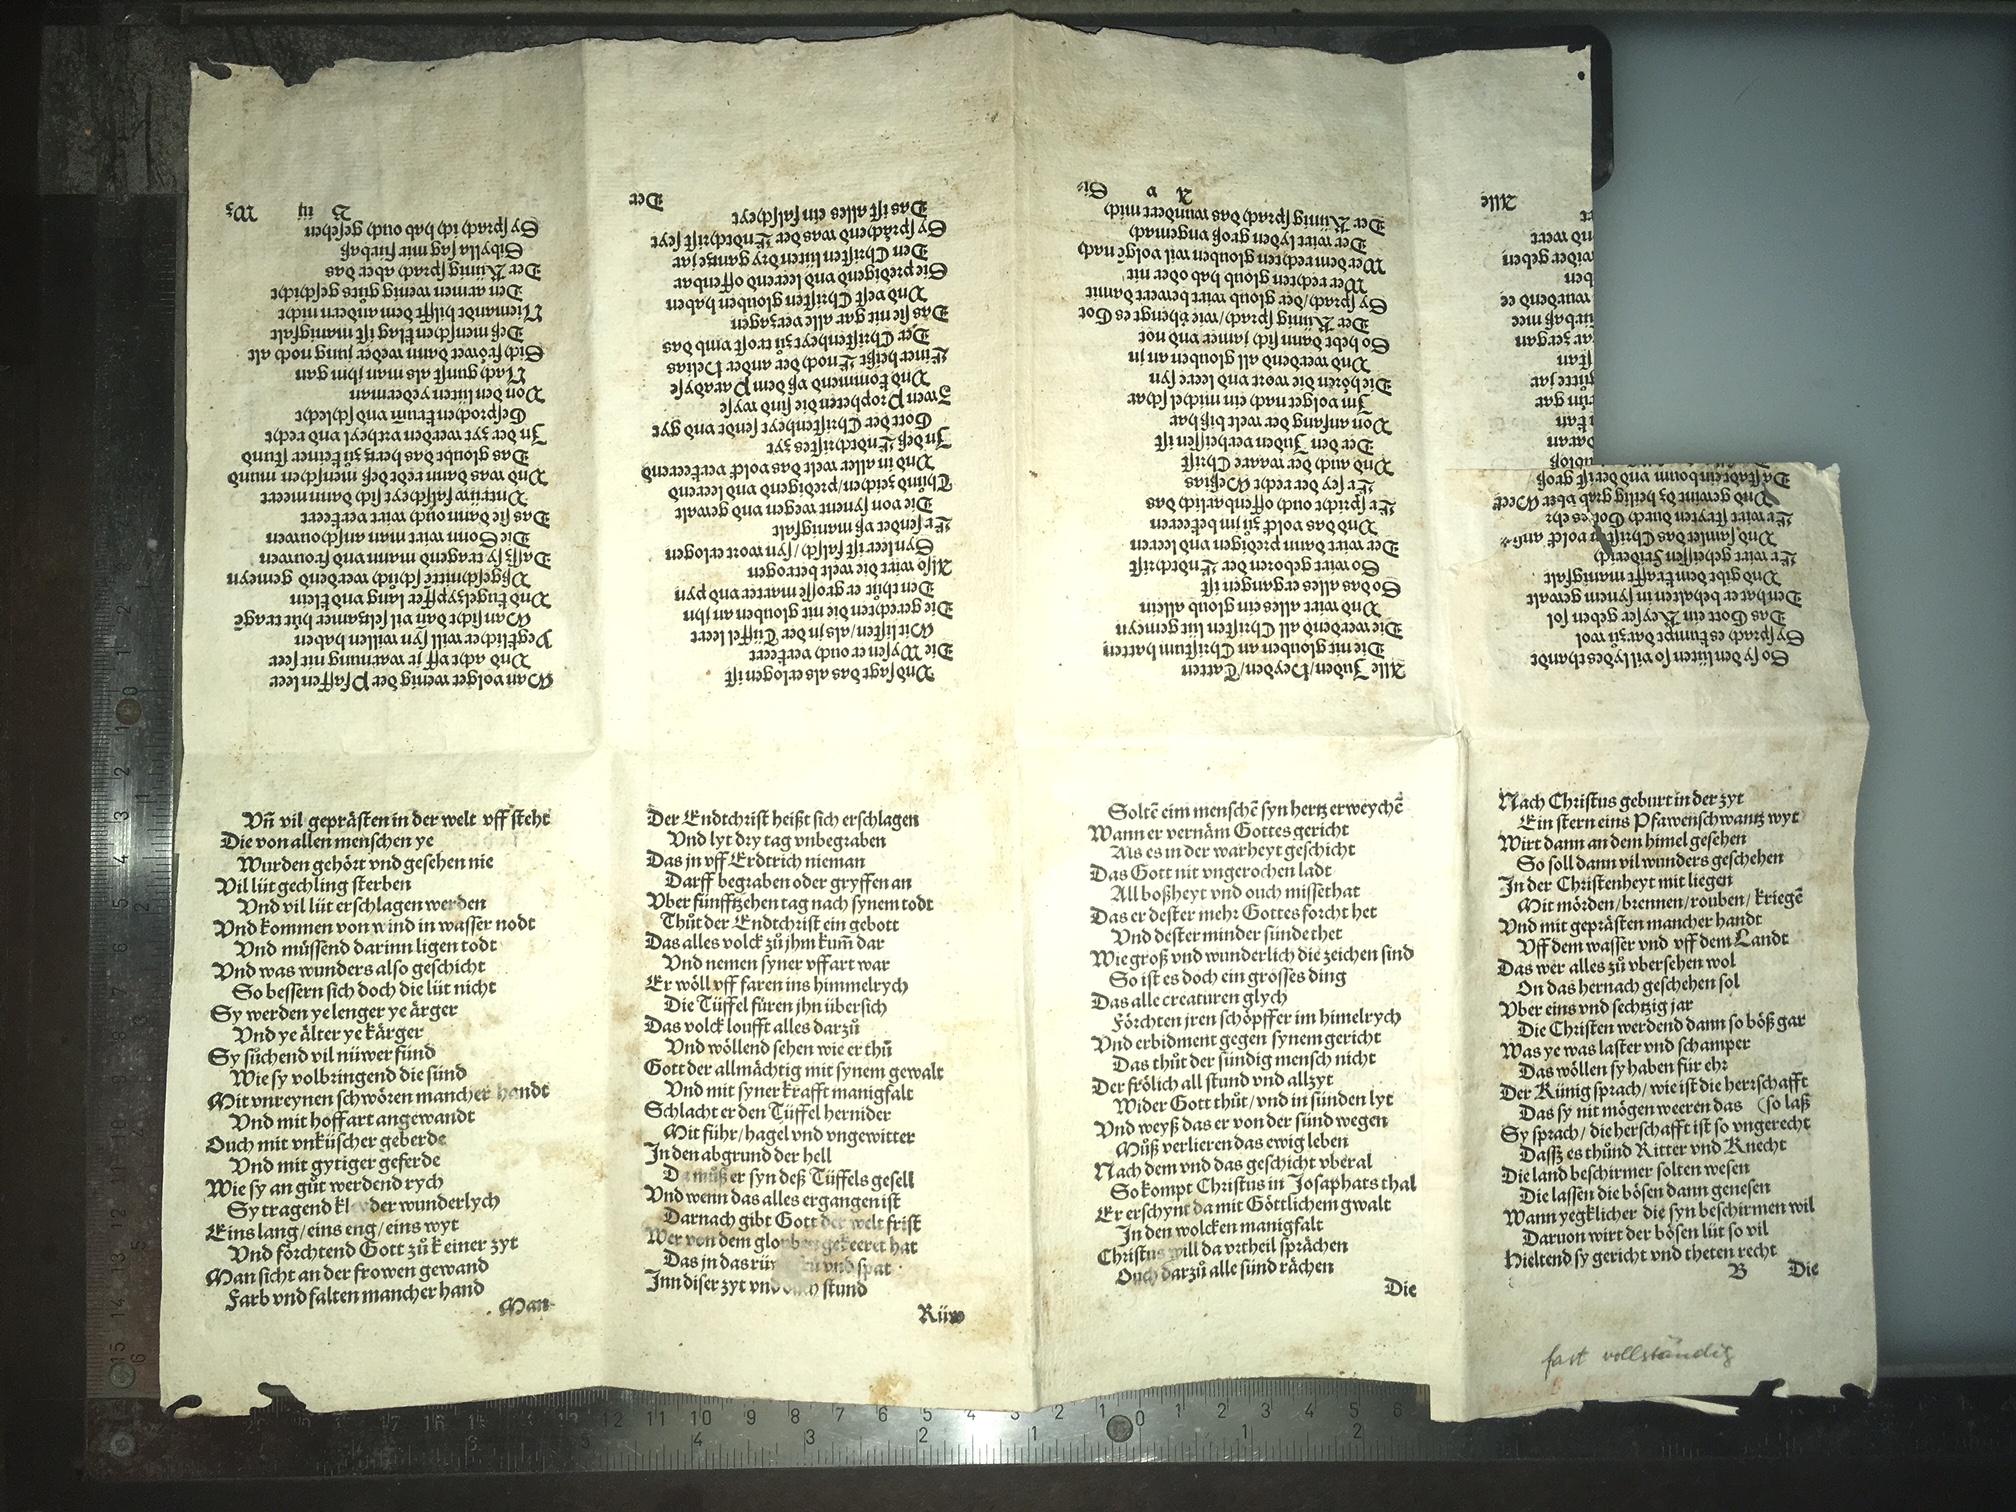 Man volget wenig der Pfaffen leer
Vnd acht vff jr warnung nit seer
Yegklicher will syn willen haben
Man sicht dañ vil seltzamer hüt tragē
Vnd kugelzypffel lang vnd klein
Vßgeschnitte schůch werdend gemeyn
Dasß sy tragend mann vnd frouwen
Die Sonn wirt man anschouwen
Das sie dann ouch wirt verkeert
Vntrüw falscheyt sich dann meeret
Vnd was dann redt deß menschen mund
Das gloubt das hertz zů keiner stund
In der zyt werden vrtheyl vnd recht
Gesprochen krum̃ vnd schlecht
Von den lüten yederman
Nach gunst als man jhm gan
Sich fröwet dann weder jung noch alt
Deß menschen klag ist manigfalt
Niemandt hilfft dem andern nicht
Den armen wenig gůts geschicht
Der Künig sprach aber das
Sibylla sag mir fürbaß
Sy sprach ich hab ouch gesehen
B iij Wz
Vnd sagt das als erlogen ist
Die Wysen er ouch verkeert
Mit listen/als jn der Tüffel leert
Die gerechten die nit glouben an jhn
Den thůt er grosse marter vnd pyn
Also wirt die welt betrogen
Syn leer ist falsch/syn wort erlogen
Er sendet vß manigfalt
Die von synent wegen vnd gewalt
Thůnd zeichen/predigend vnd leerend
Vnd in aller welt das volck verkeerend
In deß Endtchristes zyt
Gott der Christenheyt sendet vnd gyt
Zwen Propheten die sind wyse
Vnd kommend vß dem Paradyse
Einer heißt Enoch der ander Helias
Der Christenheyt zů trost vmb das
Das sie nit gar alle verzagen
Vnd vest Christen glouben haben
Sie predigend vnd leerend offenbar
Den Christen lüten dry gantze jar
Sy sprächend was der Endtchrist seyt
Das ist alles ein falscheyt
Der
Alle Juden/Heyden/Tatten
Die nit glouben an Christum hatten
Die werdend all Christen lüt gemeyn
Vnd wirt alles ein gloub allein
So das alles ergangen ist
So wirt geboren der Endtchrist
Der wirt dann predigen vnd leeren
Vnd das volck zů jm bekeeren
Er spricht ouch offenbarlich das
Er sey der recht Meßias
Vnd ouch der waare Christ
Der den Juden verheissen ist
Von anfang der welt bißhar
Im volget nach ein michel schar
Die hören die wort vnd leere syn
Vnd werdend all glouben an jn
So hebt dann sich jamer vnd not
Der Künig sprach/wie dhengt es Got
Sy sprach/der gloub wirt bewert damit
Wer rechten gloub hab oder nit
Wer dem rechten glouben wil volgē nach
Der wirt lyden groß vngemach
Der Künig sprach das wundert mich
A v Si=
So sy den lüten so vil lydes thandt
Sy sprach es kumpt darzů wol
Das Gott ein Keyser geben sol
Den hat er behalten in synem gewalt
Vnd gibt dem krafft manigfalt
Er wirt geheissen Friderich
Vnd samlet das Christen volck an sich
Er wirt stryten durch Gottes ehr
Vnd gewint dz heilig grab über Meer
Da stadt ein boum vnd der ist groß
Alle
Vñ vil geprästen in der welt vff steht
Die von allen menschen ye
Wurden gehört vnd gesehen nie
Vil lüt gechling sterben
Vnd vil lüt erschlagen werden
Vnd kommen von wind in wasser nodt
Vnd müssend darinn ligen todt
Vnd was wunders also geschicht
So bessern sich doch die lüt nicht
Sy werden ye lenger ye ärger
Vnd ye älter ye kärger
Sy sůchend vil nüwer fünd
Wie sy volbringend die sünd
Mit vnreynen schwören mancher handt
Vnd mit hoffart angewandt
Ouch mit vnküscher geberde
Vnd mit gytiger geferde
Wie sy an gůt werdend rych
Sy tragend kleyder wunderlych
Eins lang/eins eng/eins wyt
Vnd förchtend Gott zů keiner zyt
Man sicht an der frowen gewand
Farb vnd falten mancher hand
Man
Der Endtchrist heißt sich erschlagen
Vnd lyt dry tag vnbegraben
Das jn vff Erdtrich nieman
Darff begraben oder gryffen an
Vber fünfftzehen tag nach synem todt
Thůt der Endtchrist ein gebott
Das alles volck zů jhm kum̃ dar
Vnd nemen syner vffart war
Er wöll vff faren ins himmelrych
Die Tüffel füren jhn übersich
Das volck loufft alles darzů
Vnd wöllend sehen wie er thů
Gott der allmächtig mit synem gewalt
Vnd mit syner krafft manigfalt
Schlacht er den Tüffel hernider
Mit führ/hagel vnd vngewitter
In den abgrund der hell
Da můß er syn deß Tüffels gesell
Vnd wenn das alles ergangen ist
Darnach gibt Gott der welt frist
Wer von dem glouben gekeeret hat
Das jn das rüw frü vnd spat
Inn diser zyt vnd ouch stund
Rüw
Soltē eim menschē syn hertz erweychē
Wann er vernäm Gottes gericht
Als es in der warheyt geschicht
Das Gott nit vngerochen ladt
All boßheyt vnd ouch missethat
Das er dester mehr Gottes forcht het
Vnd dester minder sünde thet
Wie groß vnd wunderlich die zeichen sind
So ist es doch ein grosses ding
Das alle creaturen glych
Förchten jren schöpffer im himelrych
Vnd erbidment gegen synem gericht
Das thůt der sündig mensch nicht
Der frölich all stund vnd allzyt
Wider Gott thůt/vnd in sünden lyt
Vnd weyß das er von der sünd wegen
Můß verlieren das ewig leben
Nach dem vnd das geschicht vberal
So kompt Christus in Josaphats thal
Er erschynt da mit Göttlichem gwalt
In den wolcken manigfalt
Christus will da vrtheil sprächen
Ouch darzů alle sünd rächen
Die
Nach Christus geburt in der zyt
Ein stern eins Pfawenschwantz wyt
Wirt dann an dem himel gesehen
So soll dann vil wunders geschehen
In der Christenheyt mit liegen
Mit mörden/brennen/rouben/kriegē
Vnd mit geprästen mancher handt
Vff dem wasser vnd vff dem Landt
Das wer alles zů vbersehen wol
On das hernach geschehen sol
Vber eins vnd sechtzig jar
Die Christen werdend dann so böß gar
Was ye was laster vnd schamper
Das wöllen sy haben für ehr
Der Künig sprach/wie ist die herrschafft
Das sy nit mögen weeren das (so laß
Sy sprach/die herschafft ist so vngerecht
Dasß es thůnd Ritter vnd Knecht
Die land beschirmer solten wesen
Die lassen die bösen dann genesen
Wann yegklicher die syn beschirmen wil
Daruon wirt der bösen lüt so vil
Hieltend sy gericht vnd theten recht
B Die
fast vollständig